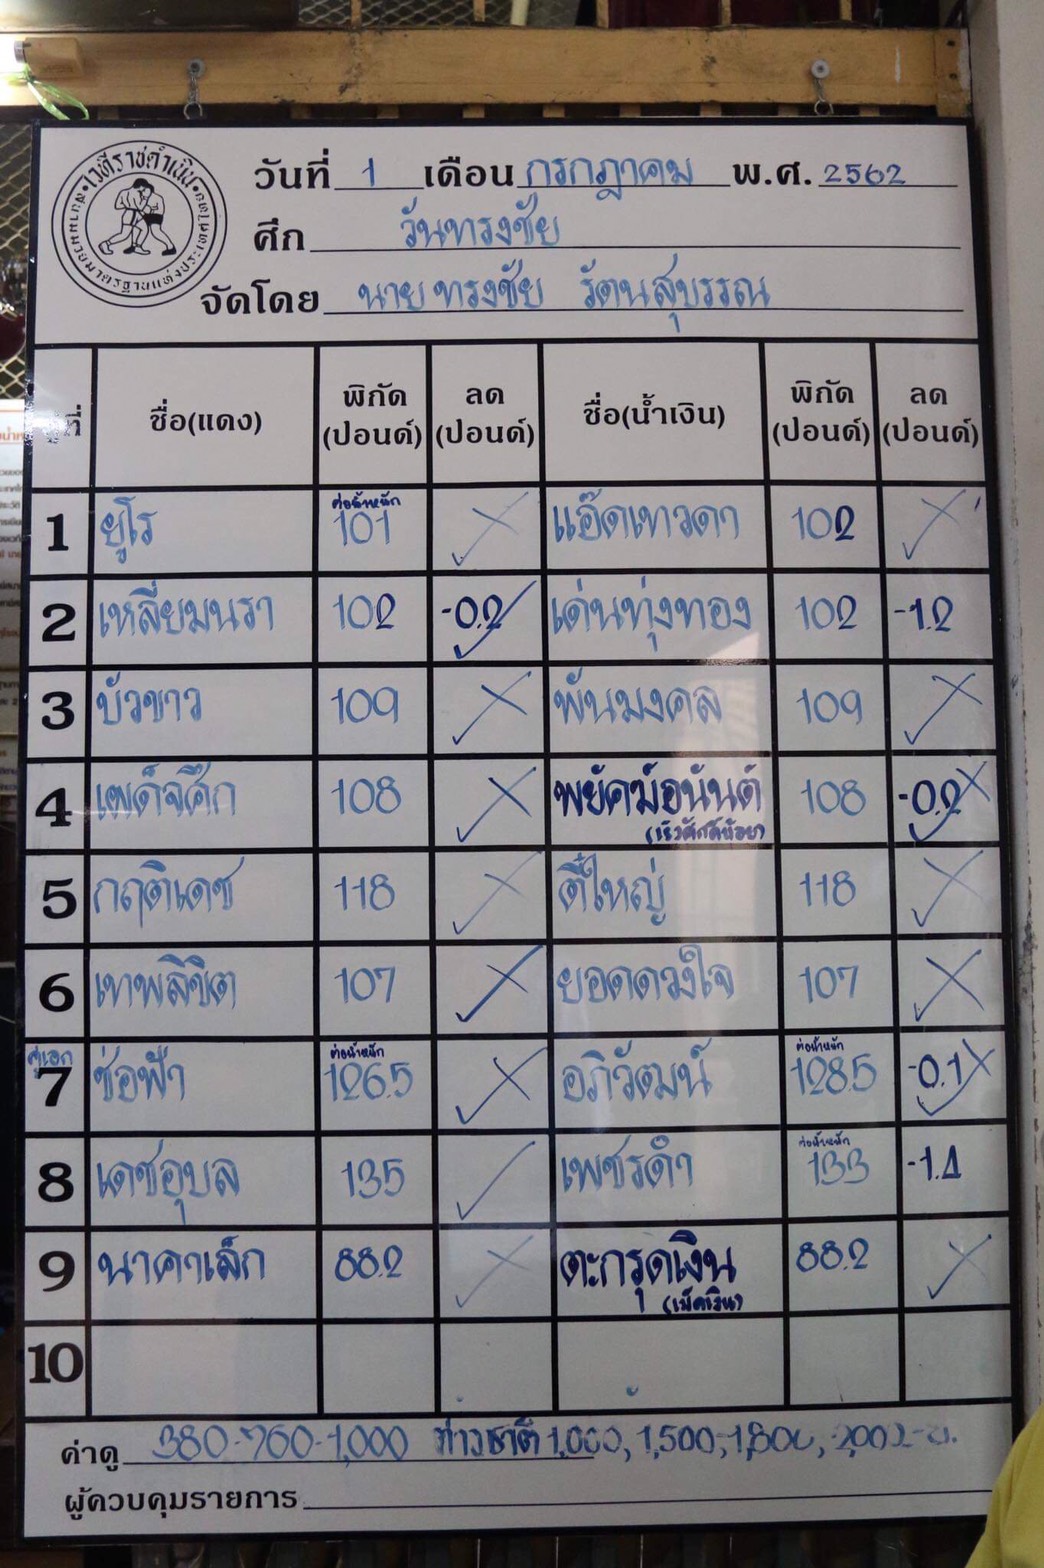 เวทีราชดำเนิน
วันที่ 1 เดือน กรกฎาคม พ.ศ. 2562
ศึก วันทรงชัย
จัดโดย นายทรงชัย รัตนสุบรรณ
ที่ ชื่อ(แดง) พิกัด (ปอนด์) ลด (ปอนด์) ชื่อ(น้ำเงิน) พิกัด (ปอนด์) ลด (ปอนด์)
1 ยูโร ต่อน้ำหนัก 101 แอ๊ดเทวดา 102
2 เหลี่ยมนรา 102 -0.2 เด่นทุ่งทอง 102 -1.2
3 บัวขาว 109 พันมงคล 109
4 เพด็จศึก 108 พยัคฆ์อนันต์ 108 -0.2
5 กฤติเดช 118 ตี๋ใหญ่ 118
6 เทพลิขิต 107 ยอดดวงใจ 107
คู่เอก
7 ช่อฟ้า ต่อน้ำหนัก 126.5 อภิวัฒน์ ต่อน้ำหนัก 128.5 -0.1
8 เดชอุบล 135 เพชรดำ ต่อน้ำหนัก 133 -1.4
9 นาคาเล็ก 88.2 ตะกรุดเงิน 88.2
10
ค่าดู 380-760-1,000 ชาวชาติ 1,000, 1,500,-1,800,
ผู้ควบคุมรายการ